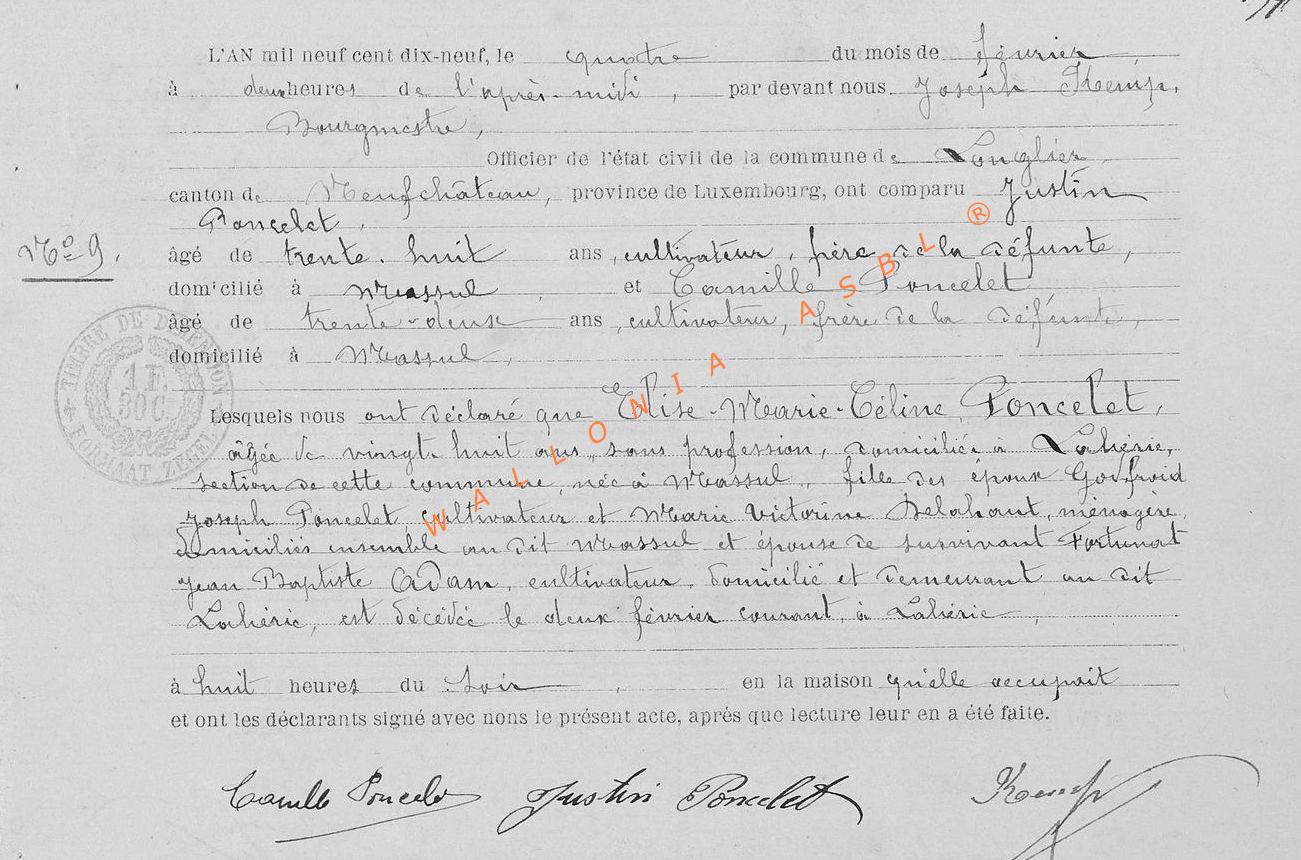 L'AN mil neuf cent dix-neuf, le quatre du mois de février
à deux heures de l'après-midi, par devant nous Joseph Kemp,
Bourgmestre,
Officier de l'état civil de la commune de Longlier,
canton de Neufchâteau, province de Luxembourg, ont comparu Justin
Poncelet,
No 9.
âgé de trente-huit ans, cultivateur, frère de la défunte,
domicilié à Massul, et Camille Poncelet
âgé de trente-deux ans, cultivateur, frère de la défunte,
domicilié à Massul,
TIMBRE DE DIMENSION
1 F.
30 C.
FORMAAT ZEGEL
Lesquels nous ont déclaré que Elise-Marie-Céline Poncelet,
âgée de vingt huit ans, sans profession, domiciliée à Lahérie,
section de cette commune, née à Massul, fille des époux Godfroid
Joseph Poncelet cultivateur et Marie Victorine Delahaut, ménagère,
domiciliés ensemble au dit Massul et épouse de survivant Fortunat
Jean Baptiste Adam, cultivateur, domicilié et demeurant au dit
Lahérie, est décédée le deux février courant, à Lahérie,
à huit heures du soir, en la maison qu'elle occupait
et ont les déclarants signé avec nous le présent acte, après que lecture leur en a été faite.
Camille Poncelet Justin Poncelet Kemp
WALLONIA ASBL ®